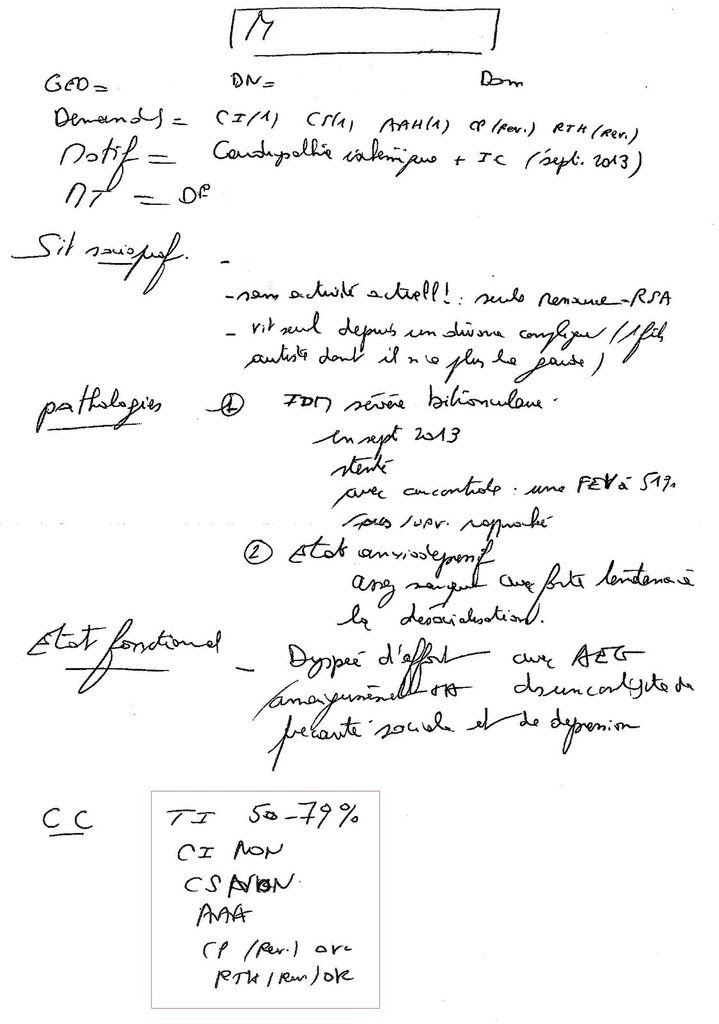 M
GEO = DN = Dom
Demandes = CI (1) CS (1) AAH (1) CP (Rev.) RTH (Rev.)
Motif = Cardiopathie ischémique + IC (sept. 2013)
MT = DP
Sit socioprof. -
- sans activité actuell! : seule ressource - RSA
- vit seul depuis un divorce compliqué (1 fils
autiste dont il n'a plus la garde)
pathologies ① IDM sévère bitronculaire.
en sept 2013
stenté
avec au controle : une FEV à 51%
rapproché
② Etat anxiodépressif
assez majeur avec forte tendance à
la désocialisation.
Etat fonctionnel - Dyspnée d'effort avec AEG
ds un contexte de
précarité sociale et de dépression
CC TI 50-79%
CI NON
CS NON.
AAA
CP (Rev.)
RTH (Rev.) OK